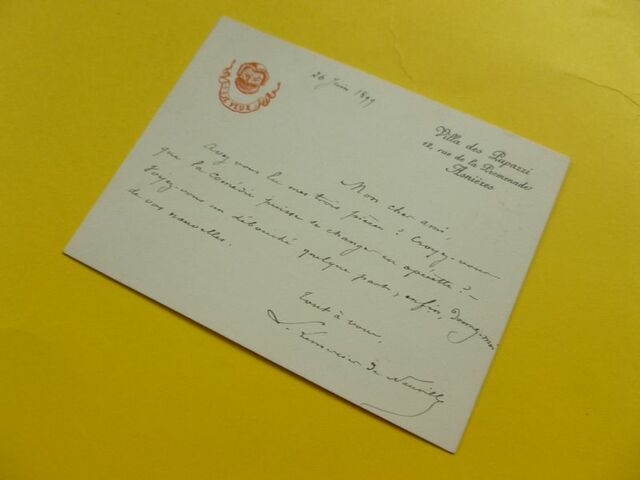 JE VEUX
26 Juin 1899
Villa des Pupazzi
12, rue de la Promenade
Asnières
Mon cher ami,
Avez-vous lu mes trois pièces ? Croyez-vous
que la comédie puisse se changer en opérette ? –
Voyez-vous un débouché quelque part, enfin, donnez-moi
de vos nouvelles.
Tout à vous,
L. Lemercier de Neuville